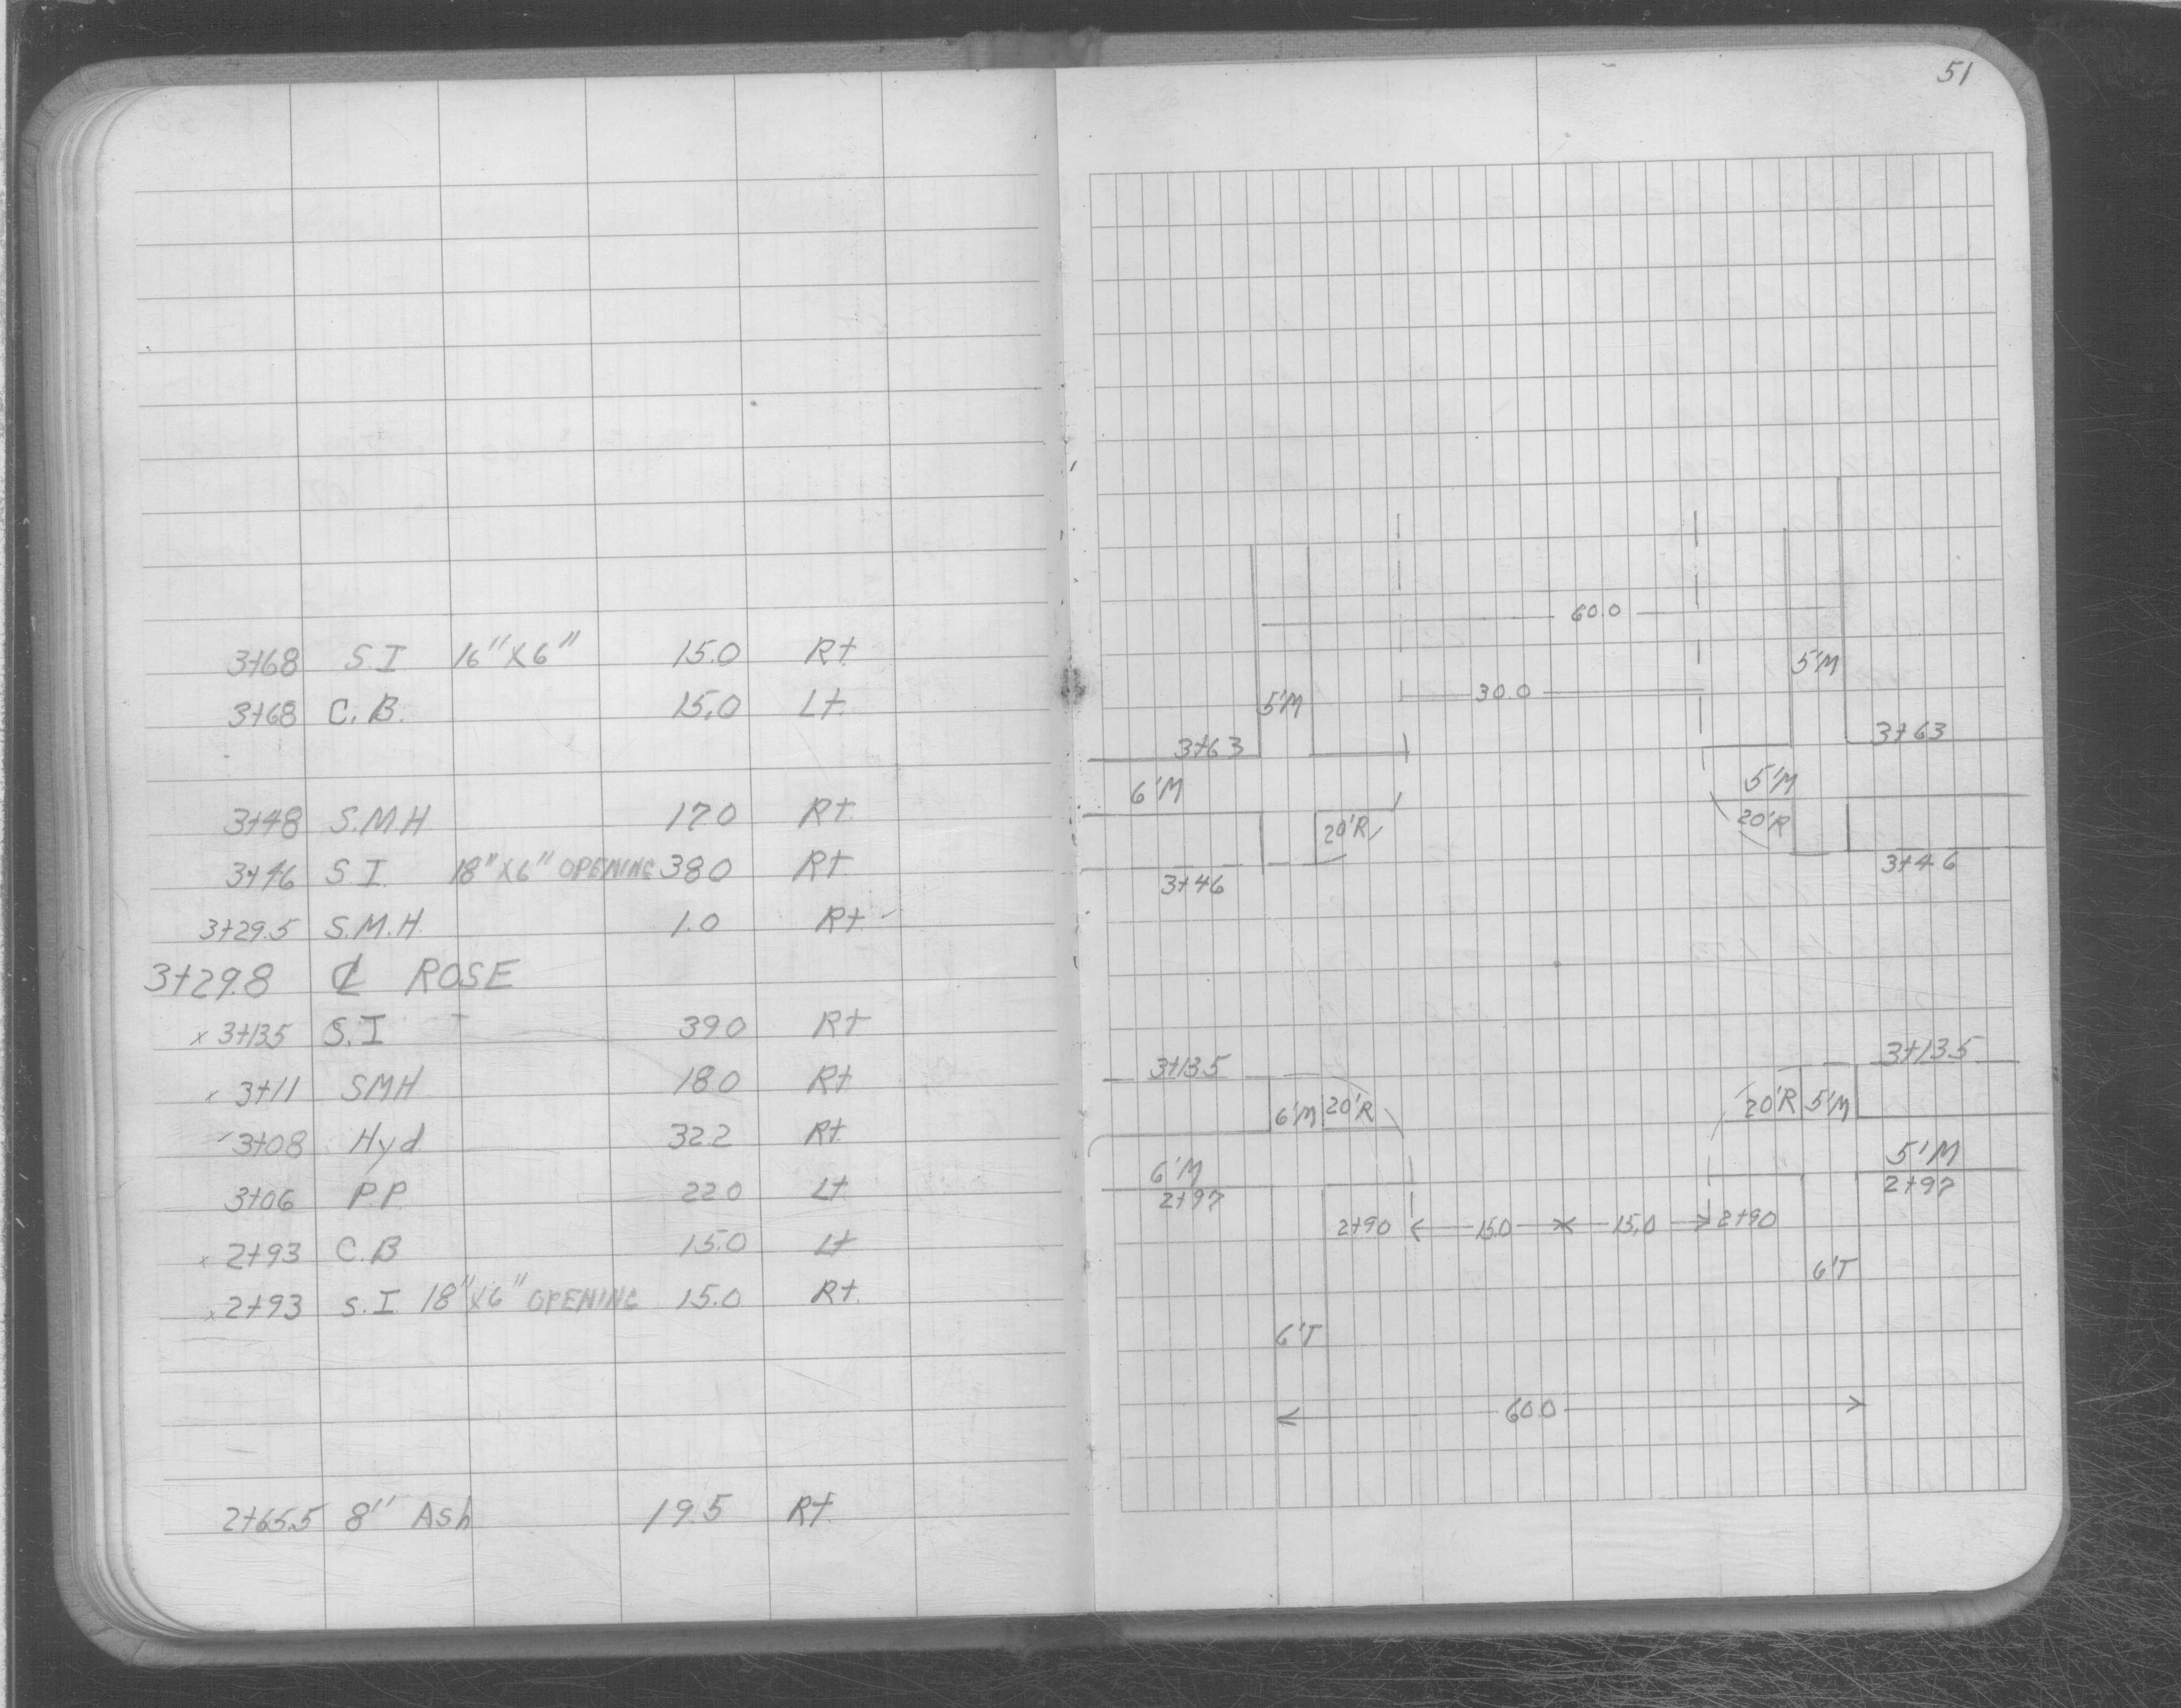 3+68 S.I 16" X 6" 15.0 Rt.
3+68 C.B. 15.0 Lt.
3+48 S.M.H 17.0 Rt.
3+46 S.I. 18" X 6" OPENING 38.0 Rt.
3+29.5 S.M.H. 1.0 Rt.
3+29.8 ℄ ROSE
x 3+13.5 S.I 39.0 Rt
x 3+11 SMH 18.0 Rt
3+08 Hyd. 32.2 Rt.
3+06 P.P. 22.0 Lt
x 2+93 C.B 15.0 Lt
x 2+93 S.I 18" X 6" OPENING 15.0 Rt.
2+65.5 8" Ash 19.5 Rt.
51
60.0
5'M
30.0
5'M
3+63 3+63
6'M 5'M
20'R 20'R
3+46 3+46
3+13.5 3+13.5
6'M 20'R 20'R 5'M
6'M 5'M
2+97 2+97
2+90 15.0 15.0 2+90
6'T
6'T
60.0